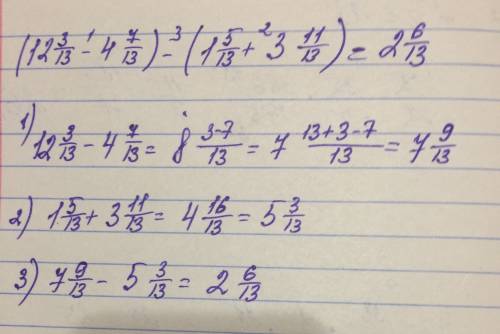 (12 3/13 -¹ 4 7/13) -³ (1 5/13 +² 3 11/13) = 2 6/13
1) 12 3/13 - 4 7/13 = 8 3-7/13 = 7 13+3-7/13 = 7 9/13
2) 1 5/13 + 3 11/13 = 4 16/13 = 5 3/13
3) 7 9/13 - 5 3/13 = 2 6/13